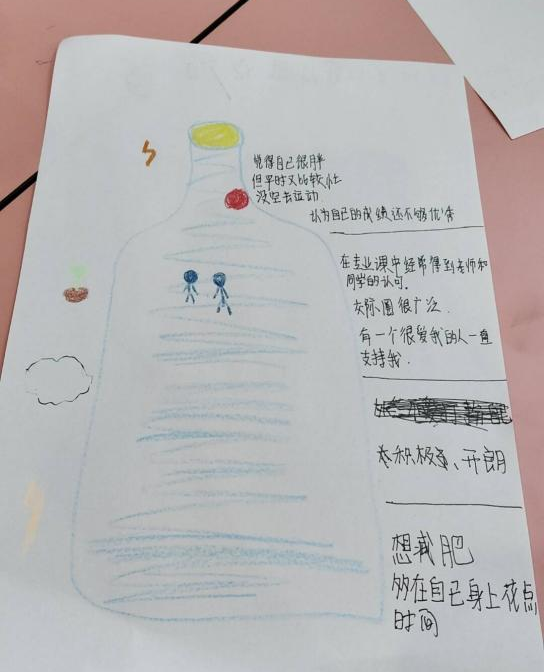 觉得自己很胖
但平时又比较忙
没空去运动
认为自己的成绩还不够优秀
在专业课中经常得到老师和
同学的认可。
交际圈很广泛
有一个很爱我的人一直
支持我.
积极、开朗
想减肥
多在自己身上花点
时间